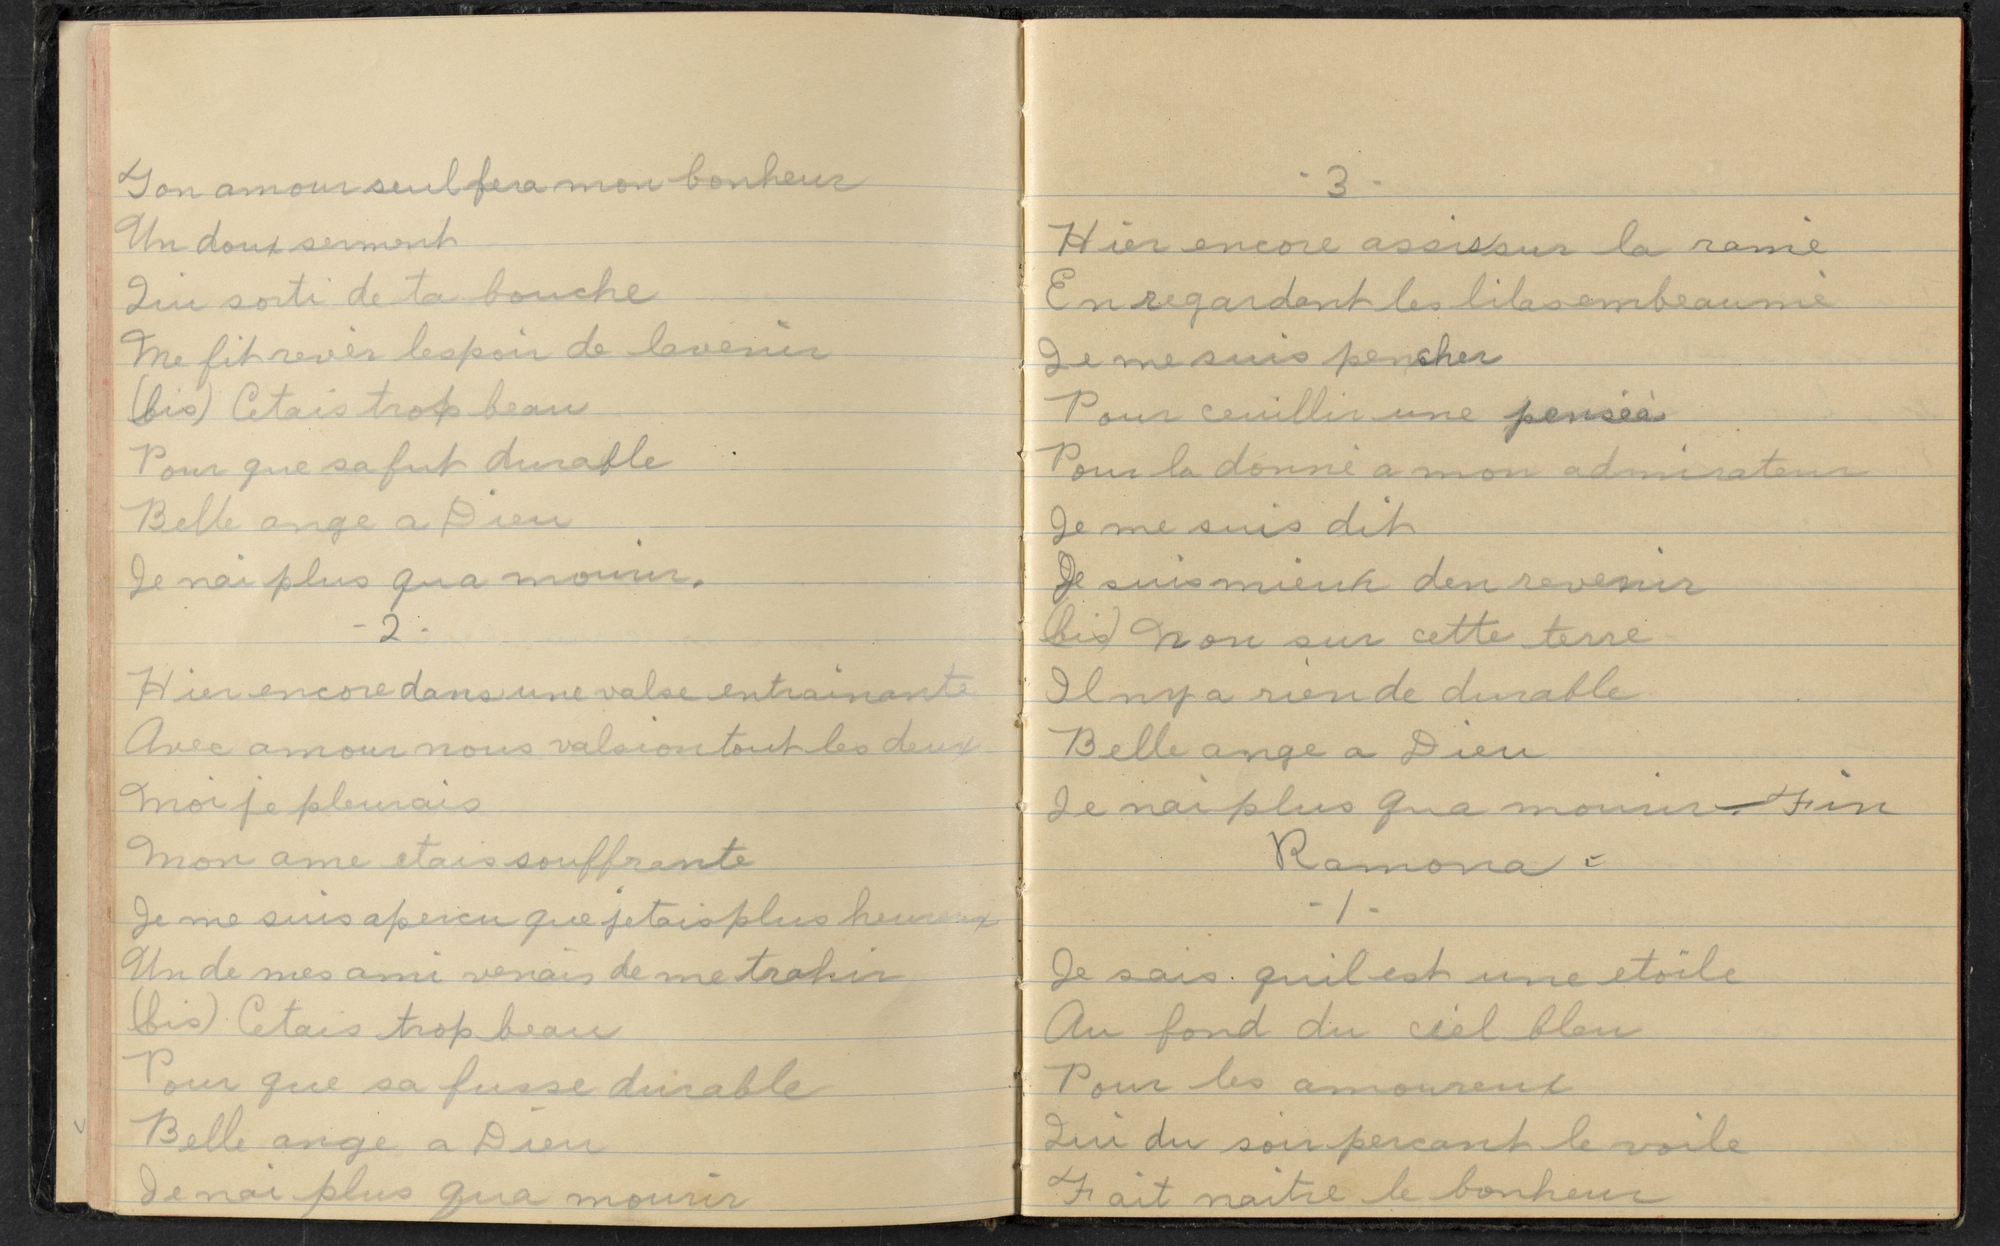 Ton amour seul fera mon bonheur
Un doux serment
Qui sorti de ta bouche
Me fit revèr lespoir de lavenir
(bis) Cetais trop beau
Pour que sa fut durable
Belle ange a Dieu
Je nai plus qua mourir.
- 2 -
Hier encore dans une valse entrainante
Avec amour nous valsion tout les deux
Moi je pleurais
Mon ame etais souffrante
Je me suis apercu que jetais plus heureux
Un de mes ami venais de me trahir
(bis) Cetais trop beau
Pour que sa fusse durable
Belle ange a Dieu
Je nai plus qua mourir
- 3 -
Hier encore assis sur la ramé
En regardant les lilas embeaumé
Je me suis pencher
Pour ceuillir une pensée
Pour la donné a mon admirateur
Je me suis dit
Je suis mieux den revenir
(bis) Non sur cette terre
Il ny a rien de durable
Belle ange a Dieu
Je nai plus qua mourir - Fin
Ramona -
- 1 -
Je sais quil est une etoile
Au fond du ciel bleu
Pour les amoureux
Qui du soir percant le voile
Fait naitre le bonheur